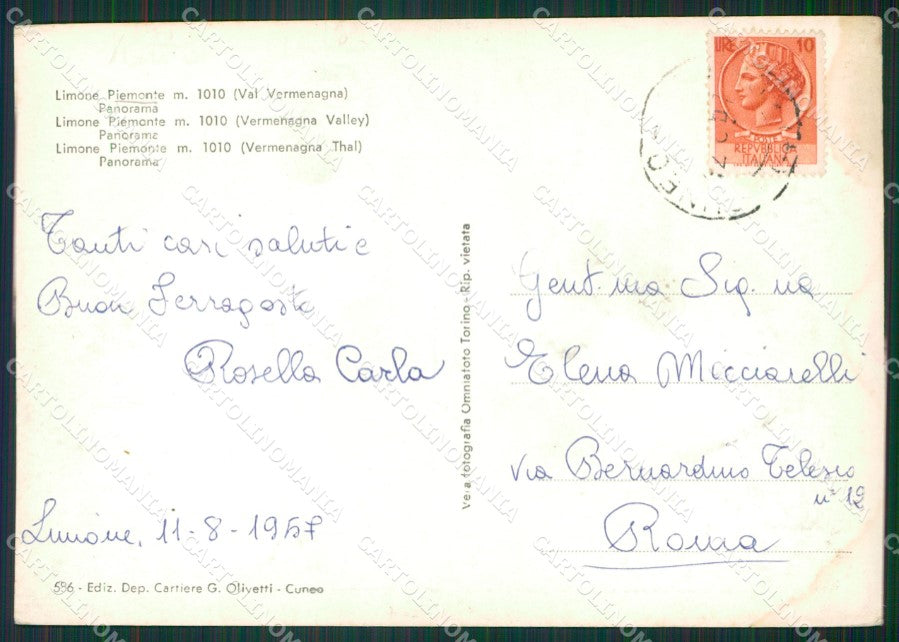 Limone Piemonte m. 1010 (Val Vermenagna)
Panorama
Limone Piemonte m. 1010 (Vermenagna Valley)
Panorama
Limone Piemonte m. 1010 (Vermenagna Thal)
Panorama
Tanti cari saluti e
Buon Ferragosto
Rosella Carla
Limone, 11-8-1957
596 - Ediz. Dep. Cartiere G. Olivetti - Cuneo
Vera fotografia Omniafoto Torino - Rip. vietata
LIRE 10
POSTE
REPUBBLICA
ITALIANA
CUNEO
Gent.ma Sig.na
Elena Micciarelli
Via Bernardino Telesio
n° 12
Roma
CARTOLINOMANIA